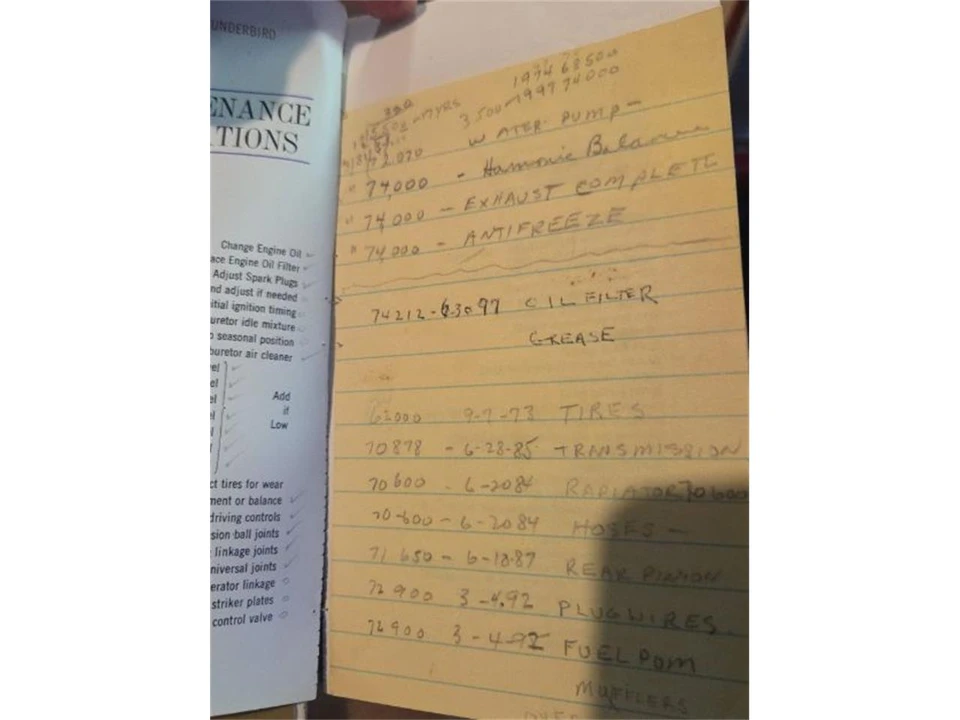 UNDERBIRD
ENANCE
TIONS
Change Engine Oil
ace Engine Oil Filter
Adjust Spark Plugs
nd adjust if needed
itial ignition timing
uretor idle mixture
o seasonal position
buretor air cleaner
el
el
el
el
el
Add
if
Low
ct tires for wear
ment or balance
driving controls
sion ball joints
linkage joints
niversal joints
erator linkage
striker plates
control valve
1974 68500
3500 - 1997 74000
YRS
WATER PUMP -
" 74,000 - Harmonic Balance
" 74,000 - EXHAUST COMPLETE
" 74,000 - ANTIFREEZE
74212 - 6-30 97 OIL FILTER
GREASE
9-7-73 TIRES
70878 - 6-28-85 TRANSMISSION
70600 - 6-2084 RADIATOR 70600
70-600 - 6-2084 HOSES -
71650 - 6-18-87 REAR PINION
72900 3-4.92 PLUG WIRES
72900 3-4-92 FUEL POM
MUFFLERS